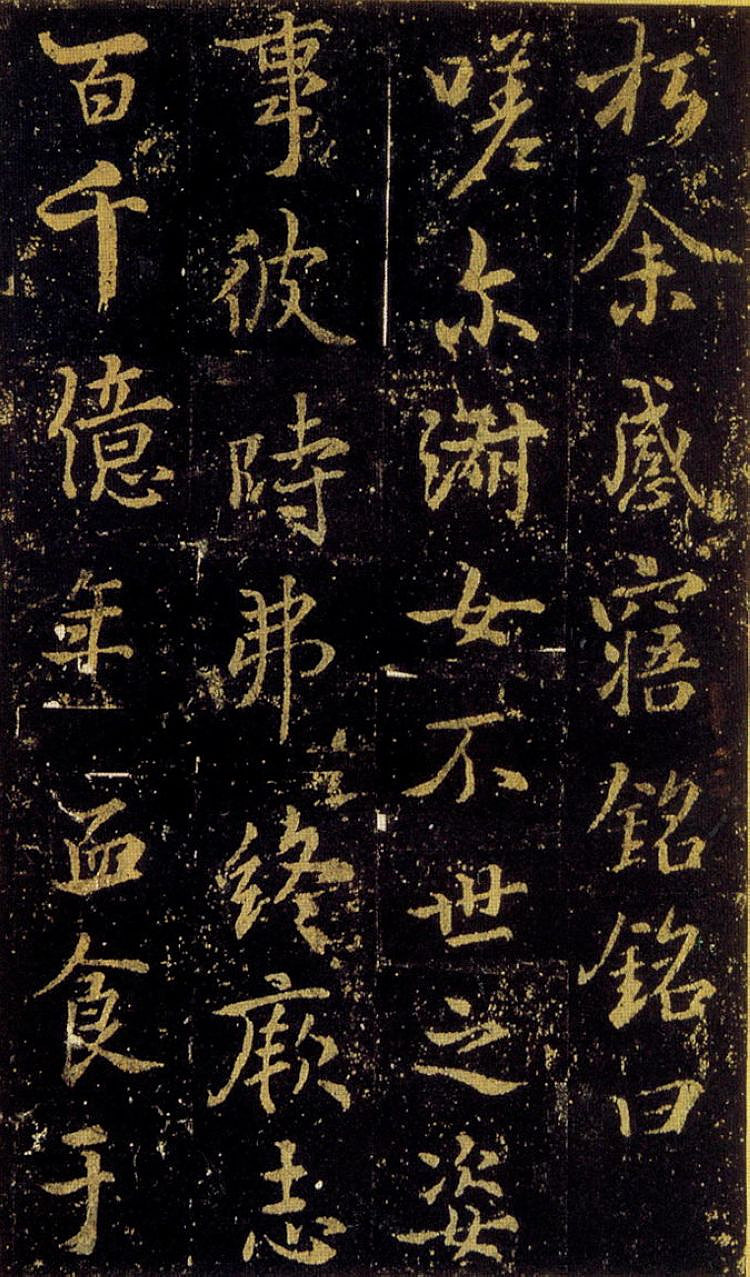 於余感寤銘銘曰
嗟尔淵女不世之姿
事彼時弗終厥志
百千億年血食于